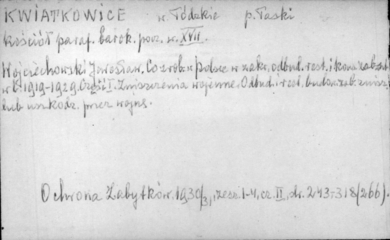 KWIATKOWICE w. Łódzkie p. Łaski
Kościół paraf. barok. pocz. w. XVIII.
Wojciechowski Jarosław. Co zrob. w Polsce w zakr. odbud. rest. i konserw. zabud.
w l. 1919-1929. Część I. Zniszczenia wojenne. Odbud. i rest. budow. zab. zniszcz.
lub uszkodz. przez wojnę.
Ochrona Zabytków. 1930/31, zesz. 1-4, cz. II, str. 243-318 (266).